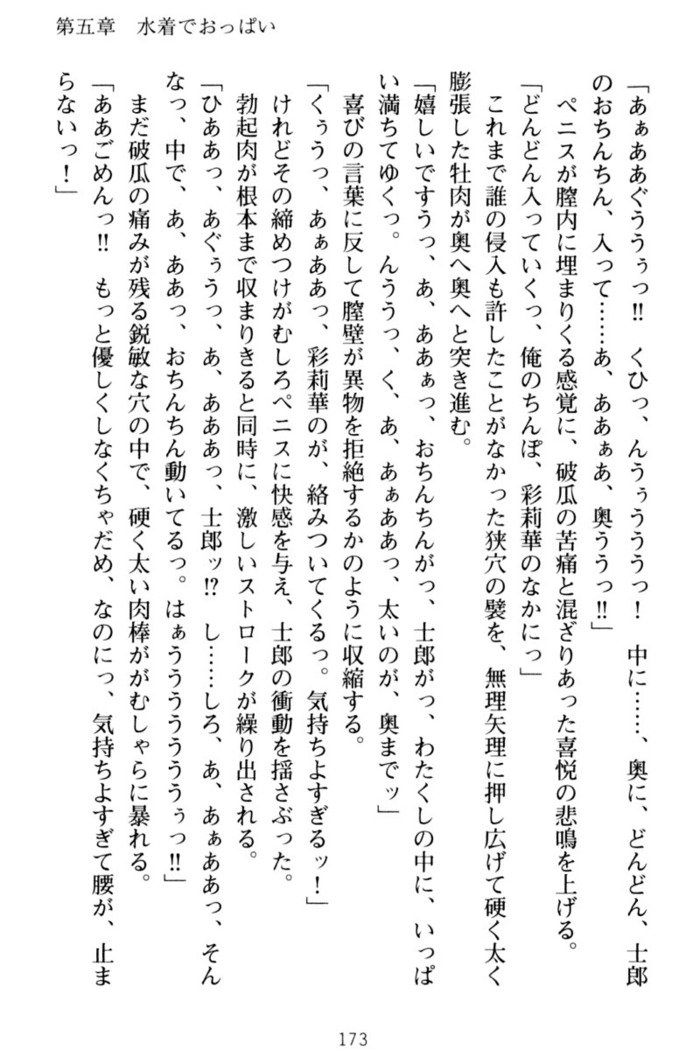 第五章　水着でおっぱい
「あぁああぐううぅっ!!　くひっ、んうぅううっ！　中に……、奥に、どんどん、士郎
のおちんちん、入って……あ、ああぁあ、奥ううっ!!」
　ペニスが膣内に埋まりくる感覚に、破瓜の苦痛と混ざりあった喜悦の悲鳴を上げる。
「どんどん入っていくっ、俺のちんぽ、彩莉華のなかにっ」
　これまで誰の侵入も許したことがなかった狭穴の襞を、無理矢理に押し広げて硬く太く
膨張した牡肉が奥へ奥へと突き進む。
「嬉しいですうっ、あ、ああぁっ、おちんちんがっ、士郎がっ、わたくしの中に、いっぱ
い満ちてゆくっ。んううっ、く、あ、あぁああっ、太いのが、奥までッ」
　喜びの言葉に反して膣壁が異物を拒絶するかのように収縮する。
「くぅうっ、あぁああっ、彩莉華のが、絡みついてくるっ。気持ちよすぎるッ！」
　けれどその締めつけがむしろペニスに快感を与え、士郎の衝動を揺さぶった。
　勃起肉が根本まで収まりきると同時に、激しいストロークが繰り出される。
「ひああっ、あぐぅうっ、あ、あああっ、士郎ッ!?　し……しろ、あ、あぁああっ、そん
なっ、中で、あ、ああっ、おちんちん動いてるっ。はぁうううううううぅっ!!」
　まだ破瓜の痛みが残る鋭敏な穴の中で、硬く太い肉棒ががむしゃらに暴れる。
「ああごめんっ!!　もっと優しくしなくちゃだめ、なのにっ、気持ちよすぎて腰が、止ま
らないっ！」
173